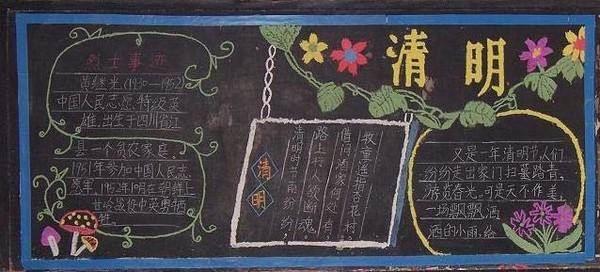 清明
烈士事迹
黄继光(1930—1952)
中国人民志愿特级英
雄,出生于四川省江
县一个贫农家庭。
1951年参加中国人民志
愿军 1952年10月在朝鲜上
甘岭战役中英勇牺
牲。
清明
清明时节雨纷纷
路上行人欲断魂
借问酒家何处有
牧童遥指杏花村
又是一年清明节,人们
纷纷走出家门扫墓踏青,
游览春光,可是天不作美,
一场飘飘洒
洒的小雨,给